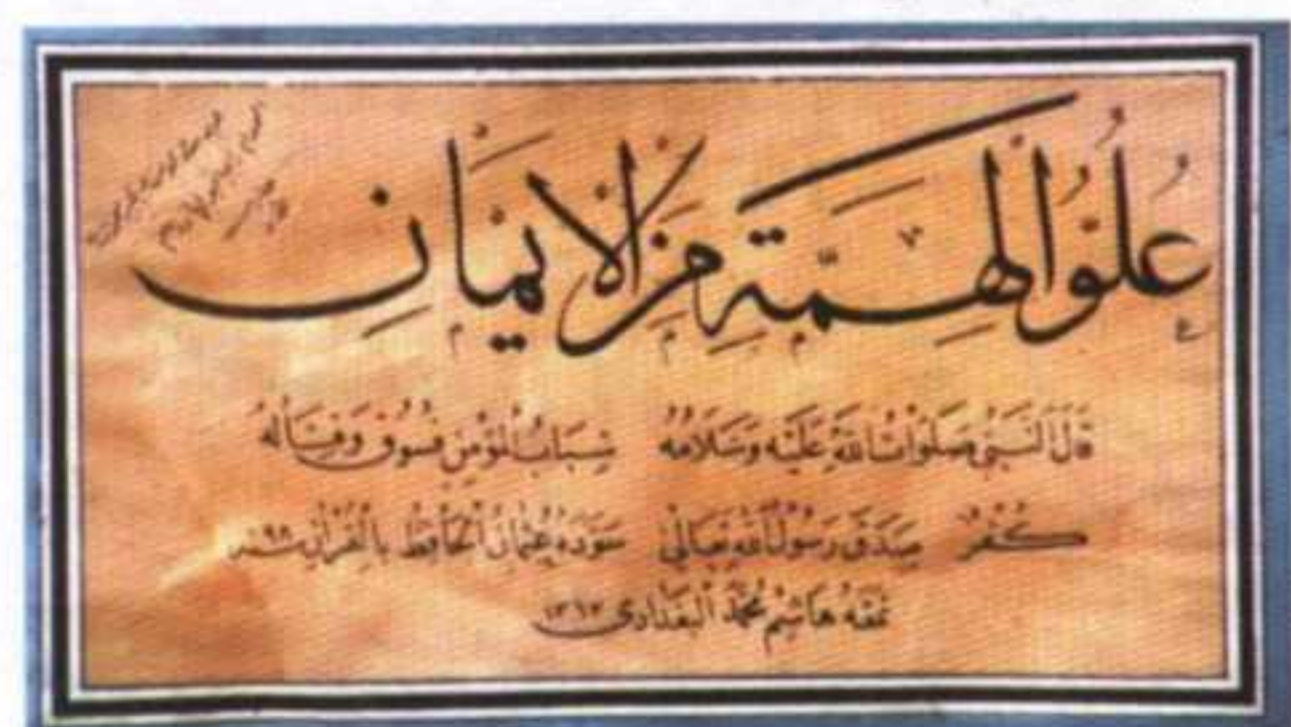 عُلُوُّ الْهِمَّةِ مِنَ الْاِيْمَانِ
قَالَ النَّبِيُّ صَلَوَاتُ اللّٰهِ عَلَيْهِ وَسَلَامُهُ سِبَابُ الْمُؤْمِنِ فُسُوقٌ وَقِتَالُهُ
كُفْرٌ صَدَقَ رَسُولُ اللّٰهِ تَعَالٰى سَوَّدَهُ عُثْمَانُ الْحَافِظُ بِالْقُرْاٰنِ سنه ٩٨
نمقه هَاشِم مُحَمَّد الْبَغْدَادِي